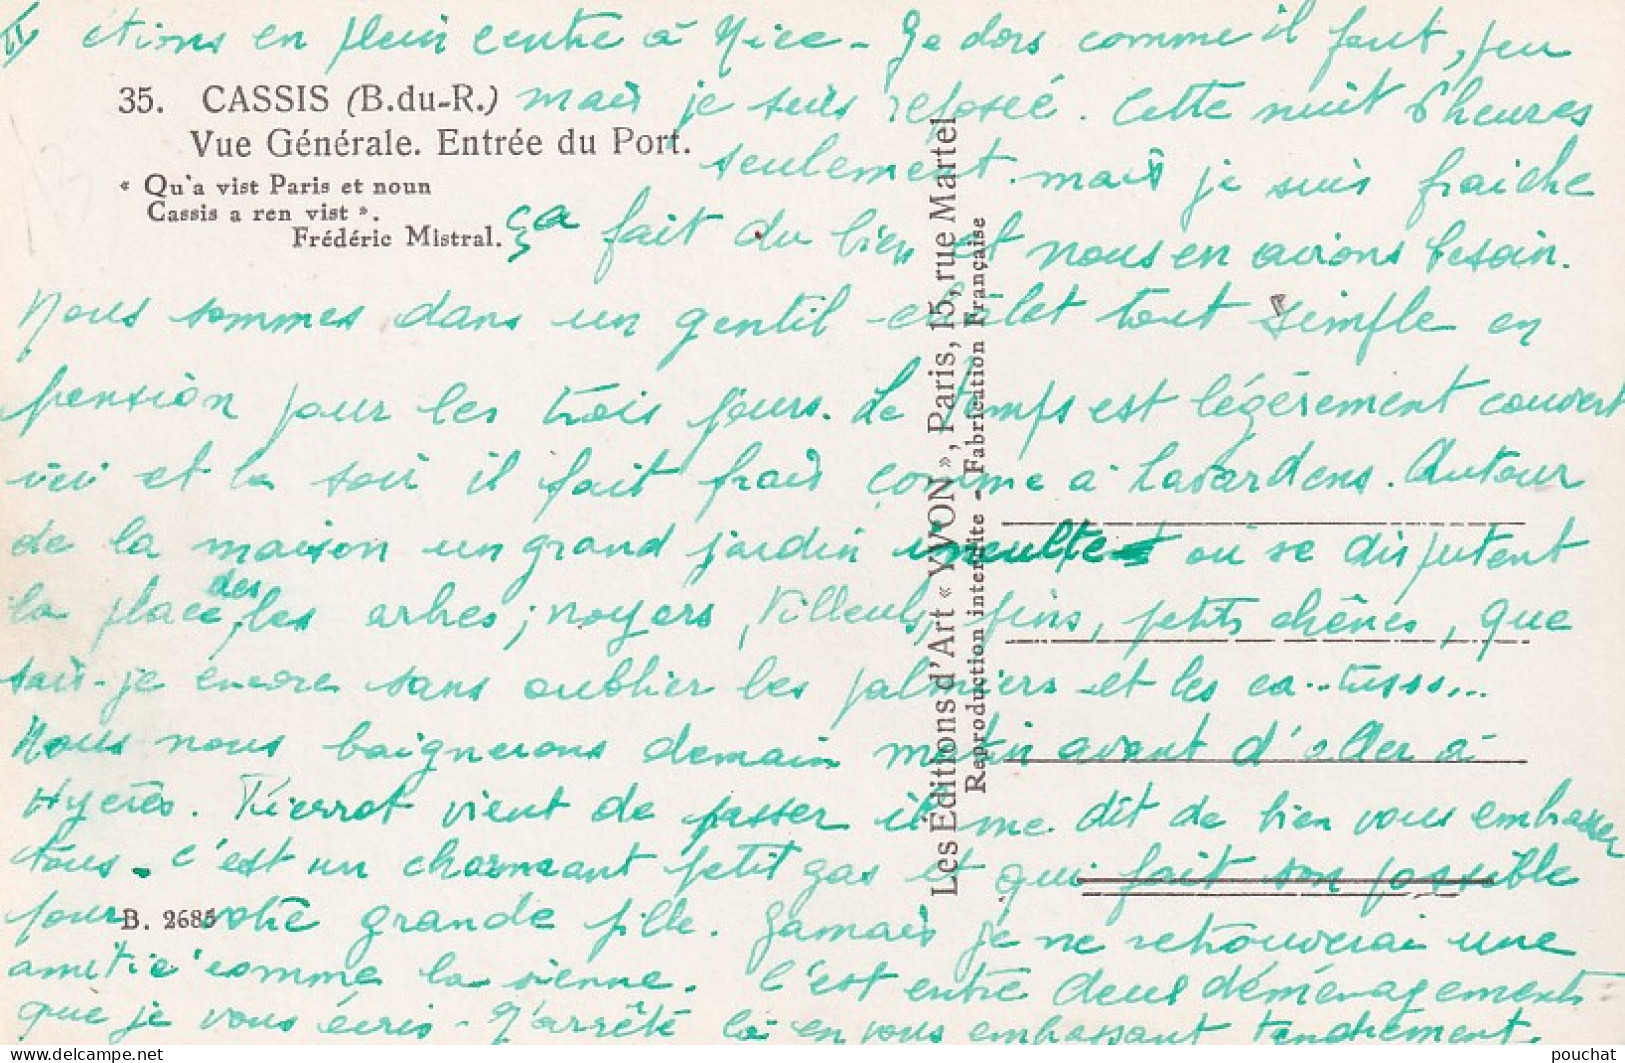 II étions en plein centre à Nice - Je dors comme il faut, peu
35. CASSIS (B.du-R.)
Vue Générale. Entrée du Port.
« Qu'a vist Paris et noun
Cassis a ren vist ».
Frédéric Mistral.
mais je suis reposée. Cette nuit 6 heures
seulement. mais je suis fraiche
ça fait du bien et nous en avions besoin.
Nous sommes dans un gentil châlet tout simple en
pension pour les trois jours. Le temps est légèrement couvert
ici et le soir il fait frais comme à Lavardens. Autour
de la maison un grand jardin inculte où se disputent
la place des les arbres ; noyers, Tilleuls, pins, petits chênes, que
sais-je encore sans oublier les palmiers et les ca..tusss...
Nous nous baignerons demain matin avant d'aller à
Hyères. Pierrot vient de passer il me dit de bien vous embrasser
tous - c'est un charmant petit gas et qui fait son possible
pour votre grande fille. Jamais je ne retrouverai une
amitié comme la sienne. C'est entre deux déménagements
que je vous écris - J'arrête là en vous embrassant tendrement.
B. 2685
Les Éditions d'Art « YVON », Paris, 15, rue Martel
Reproduction interdite - Fabrication Française
pouchat